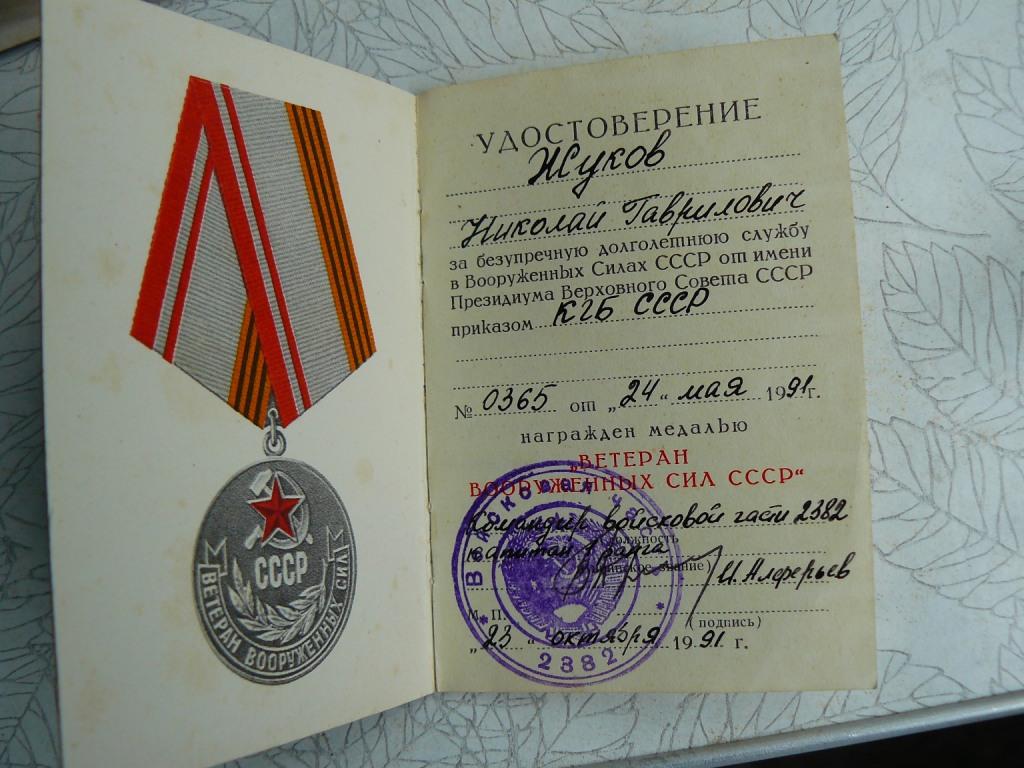 СССР
ВЕТЕРАН ВООРУЖЕННЫХ СИЛ
УДОСТОВЕРЕНИЕ
Жуков
Николай Гаврилович
за безупречную долголетнюю службу
в Вооруженных Силах СССР от имени
Президиума Верховного Совета СССР
приказом КГБ СССР
№ 0365 от „24“ мая 1991г.
награжден медалью
„ВЕТЕРАН
ВООРУЖЕННЫХ СИЛ СССР“
Командир войсковой части 2382
(должность
капитан 1 ранга
воинское звание) И. Алферьев
М. П. (подпись)
„23“ октября 1991 г.
Войсковая часть
2382